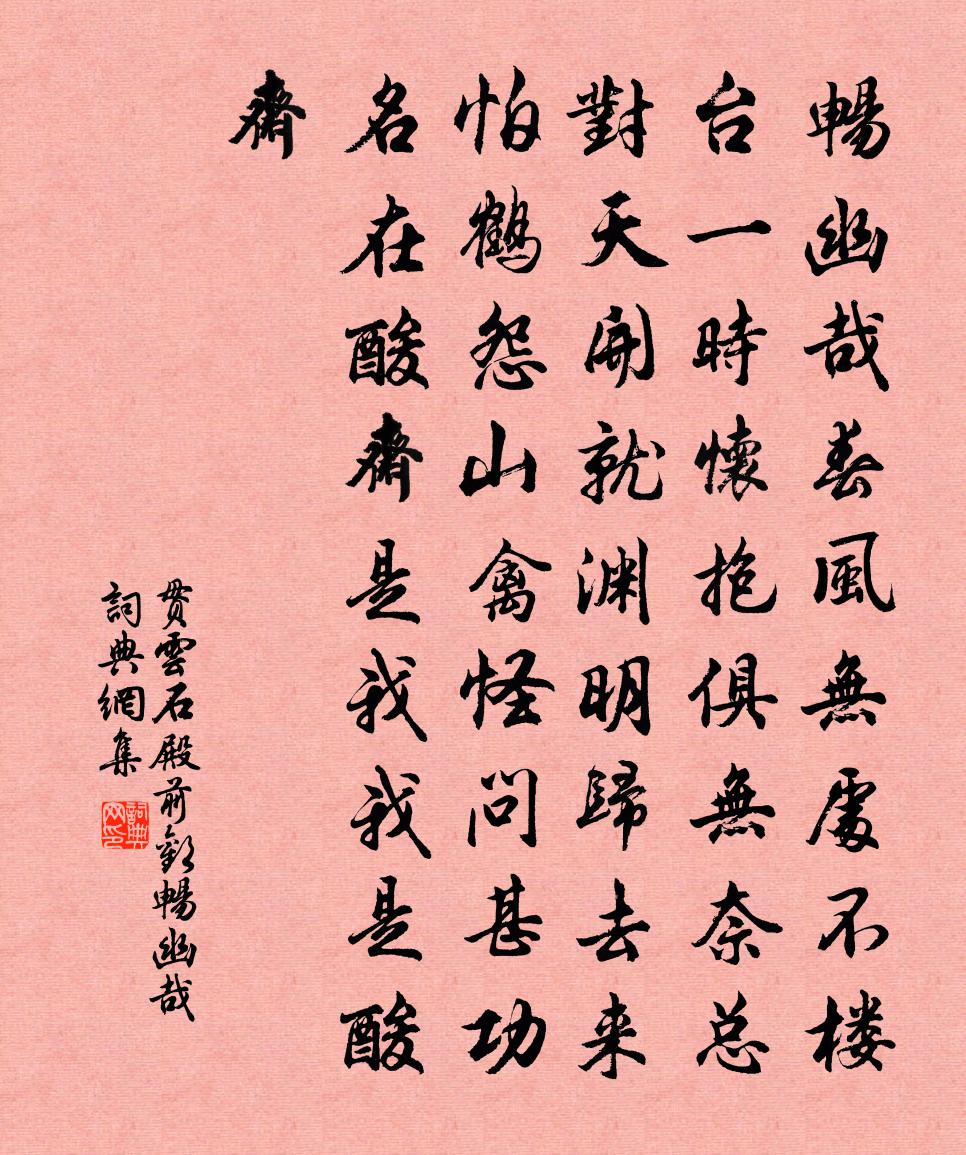 暢幽哉春風無處不楼
台一時懷抱俱無奈总
對天開就渊明歸去来
怕鶴怨山禽怪問甚功
名在酸齋是我我是酸
齋
贯雲石殿前歡暢幽哉
詞典網集
詞典网印